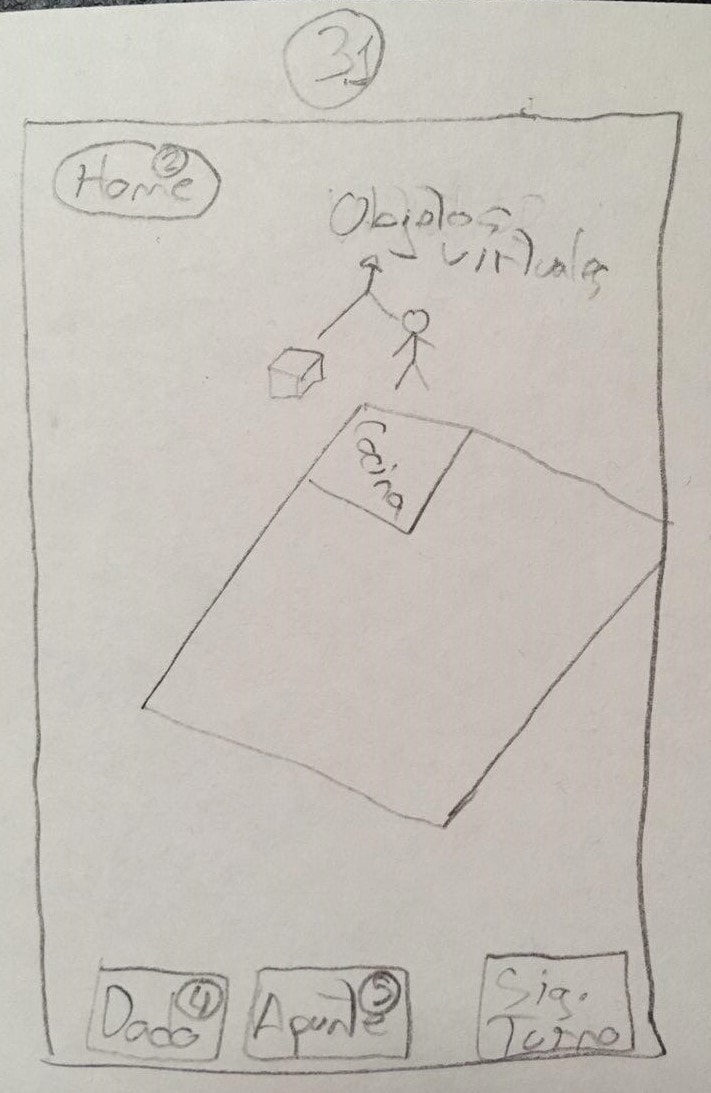 31
Home 2
Objetos
virtuales
Cocina
Dado 4
Apunte 5
Sig.
Turno